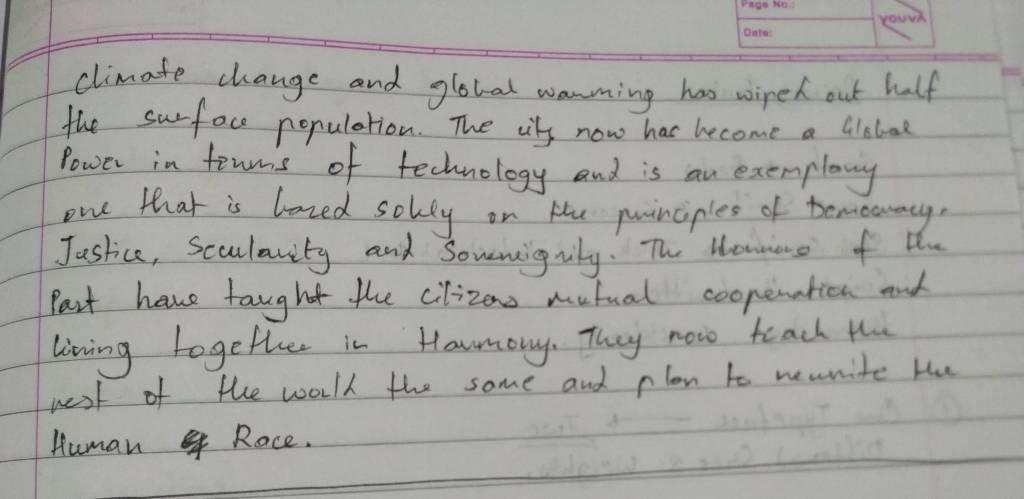 Page No.:
Date:
YOUVA
Climate change and global warming has wiped out half
the surface population. The city now has become a Global
Power in terms of technology and is an exemplary
one that is bazed solely on the principles of Democracy,
Justice, Secularity and Sovereignity. The Horrors of the
Past have taught the citizens mutual cooperation and
living together in Harmony. They now teach the
rest of the world the same and plan to reunite the
Human Race.